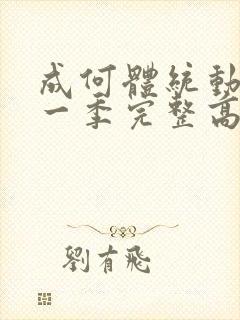 成何體統動
一季完整高
劉有飛